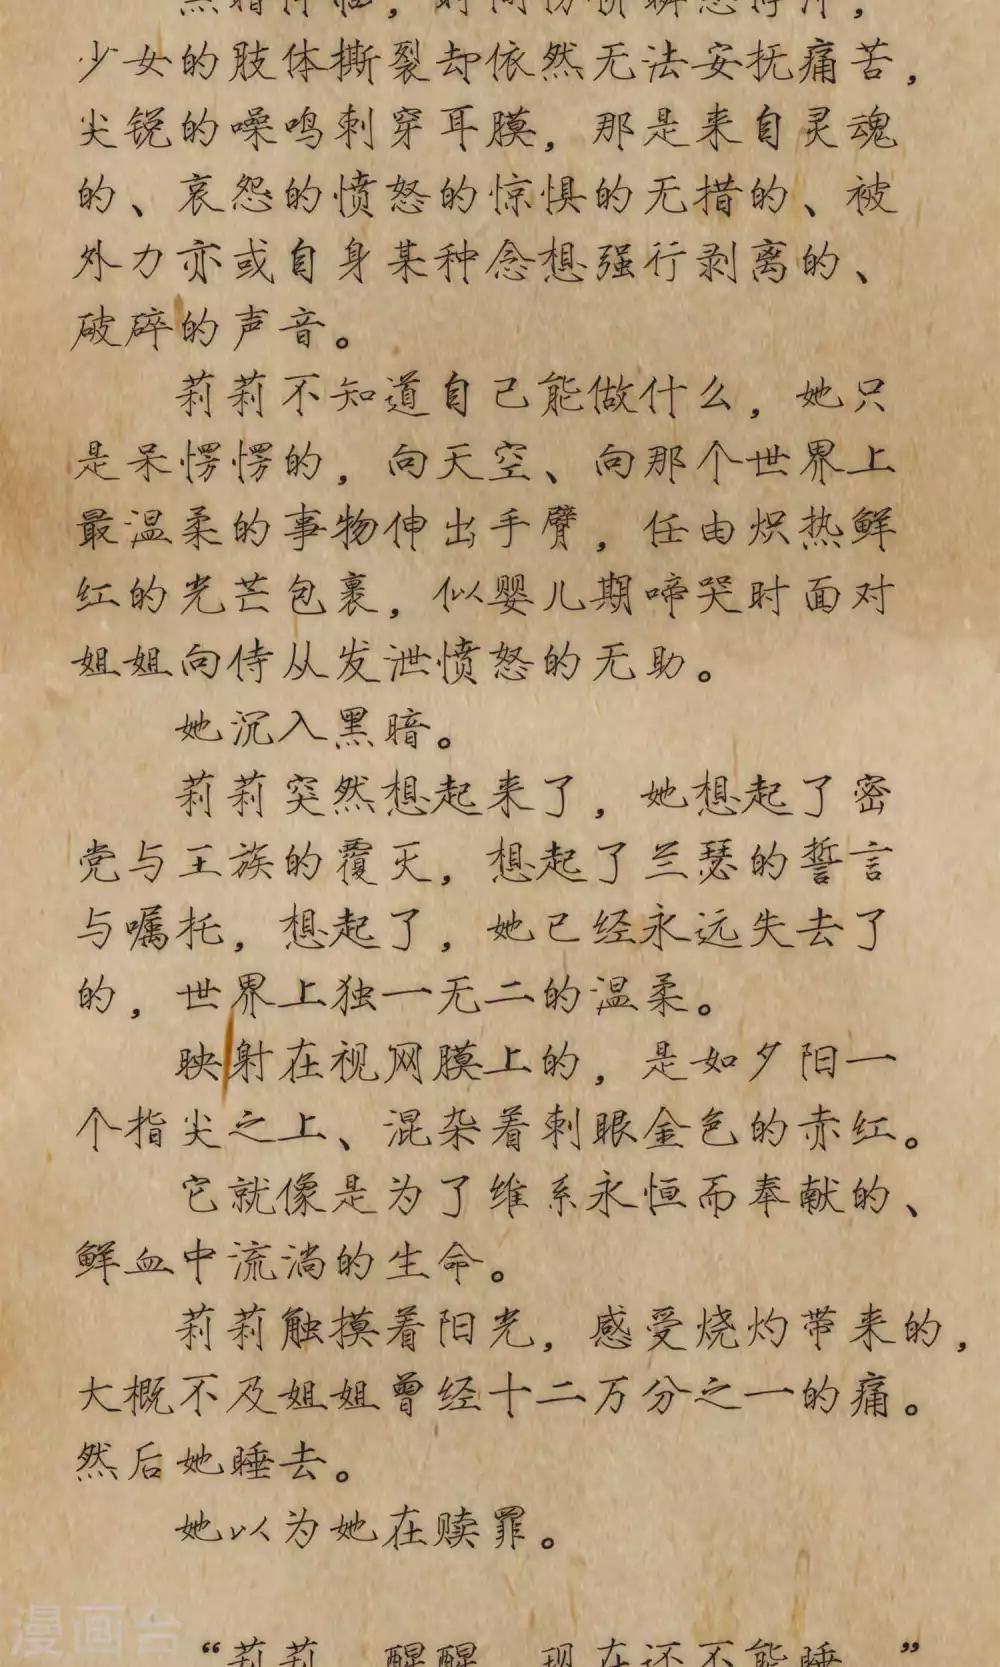 黑暗降临，时间仿佛瞬息停滞，
少女的肢体撕裂却依然无法安抚痛苦，
尖锐的噪鸣刺穿耳膜，那是来自灵魂
的、哀怨的愤怒的惊惧的无措的、被
外力亦或自身某种念想强行剥离的、
破碎的声音。
莉莉不知道自己能做什么，她只
是呆愣愣的，向天空、向那个世界上
最温柔的事物伸出手臂，任由炽热鲜
红的光芒包裹，似婴儿期啼哭时面对
姐姐向侍从发泄愤怒的无助。
她沉入黑暗。
莉莉突然想起来了，她想起了密
党与王族的覆灭，想起了兰瑟的誓言
与嘱托，想起了，她已经永远失去了
的，世界上独一无二的温柔。
映射在视网膜上的，是如夕阳一
个指尖之上、混杂着刺眼金色的赤红。
它就像是为了维系永恒而奉献的、
鲜血中流淌的生命。
莉莉触摸着阳光，感受烧灼带来的，
大概不及姐姐曾经十二万分之一的痛。
然后她睡去。
她以为她在赎罪。
漫画台
“莉莉，醒醒，现在还不能睡。”